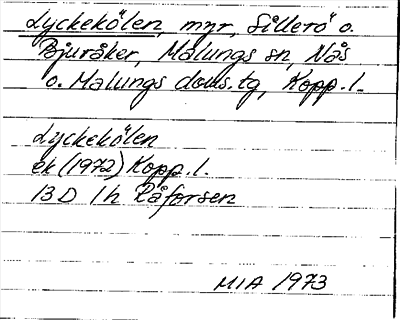 Lyckekölen, myr, Sillerö o.
Bjuråker, Malungs sn, Nås
o. Malungs doms.tg, Kopp. l.
Lyckekölen
ek (1972) Kopp. l.
13 D 1h Råforsen
MIA 1973